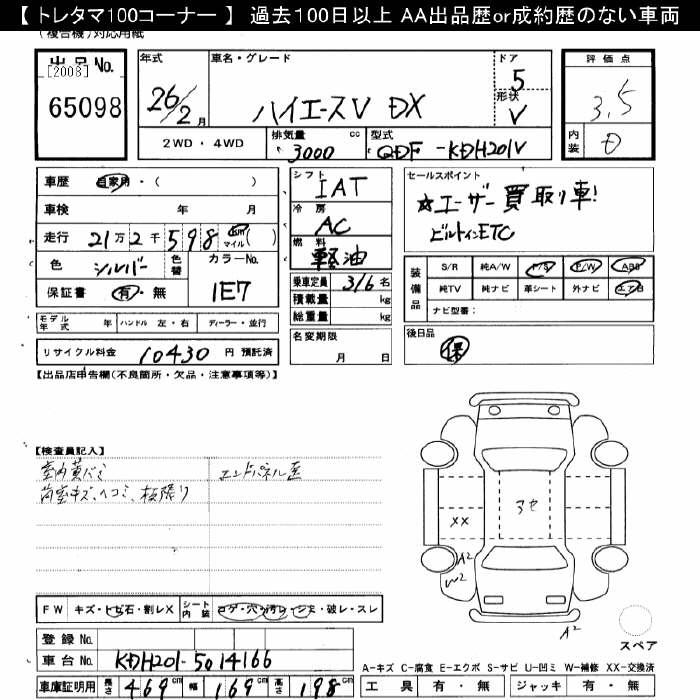 【 トレタマ100コーナー 】 過去100日以上 AA出品歴or成約歴のない車両
(複合機)対応用紙
出品No.
[2008]
65098
年式
26/2月
車名・グレード
ハイエースV DX
ドア
5
形状
V
評価点
3.5
内装
D
2WD・4WD
排気量 cc
3000
型式
QDF-KDH201V
車歴 自家用・( )
車検 年 月
走行 21万2千598 km マイル ( )
色 シルバー 色替
カラーNo.
1E7
保証書 有・無
モデル年式 年 ハンドル 左・右 ディーラー・並行
リサイクル料金 10430 円 預託済
シフト
IAT
冷房
AC
燃料
軽油
乗車定員 3/6 名
積載量 kg
総重量 kg
名変期限
月 日
セールスポイント
☆ユーザー買取り車!
ビルトインETC
装備品
S/R 純A/W P/S P/W ABS
純TV 純ナビ 革シート 外ナビ エアB
ナビ型番:
後日品
保
【出品店申告欄(不良箇所・欠品・注意事項等)】
【検査員記入】
室内黄バミ エンドパネル歪
荷室キズ、ヘコミ、板張り
XX
A2
W2
A2
スペア
FW キズ・トビ石・割レX シート内装 コゲ・穴・汚レ・シミ・破レ・スレ
登録No.
車台No. KDH201-5014166
車庫証明用 長さ 469cm 幅 169cm 高さ 198cm
A-キズ C-腐食 E-エクボ S-サビ U-凹ミ W-補修 XX-交換済
工具 有・無 ジャッキ 有・無